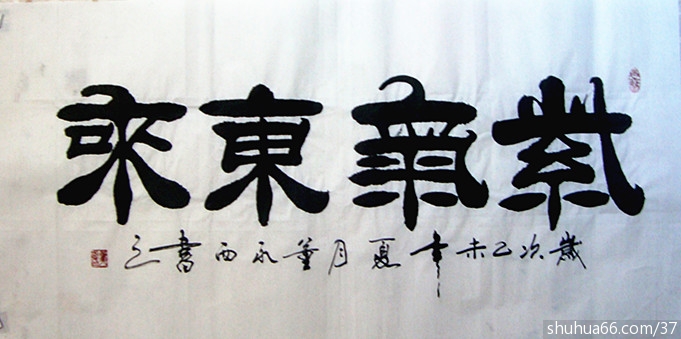 紫氣東來
歲次乙未年夏月董永西書之
shuhua66.com/37